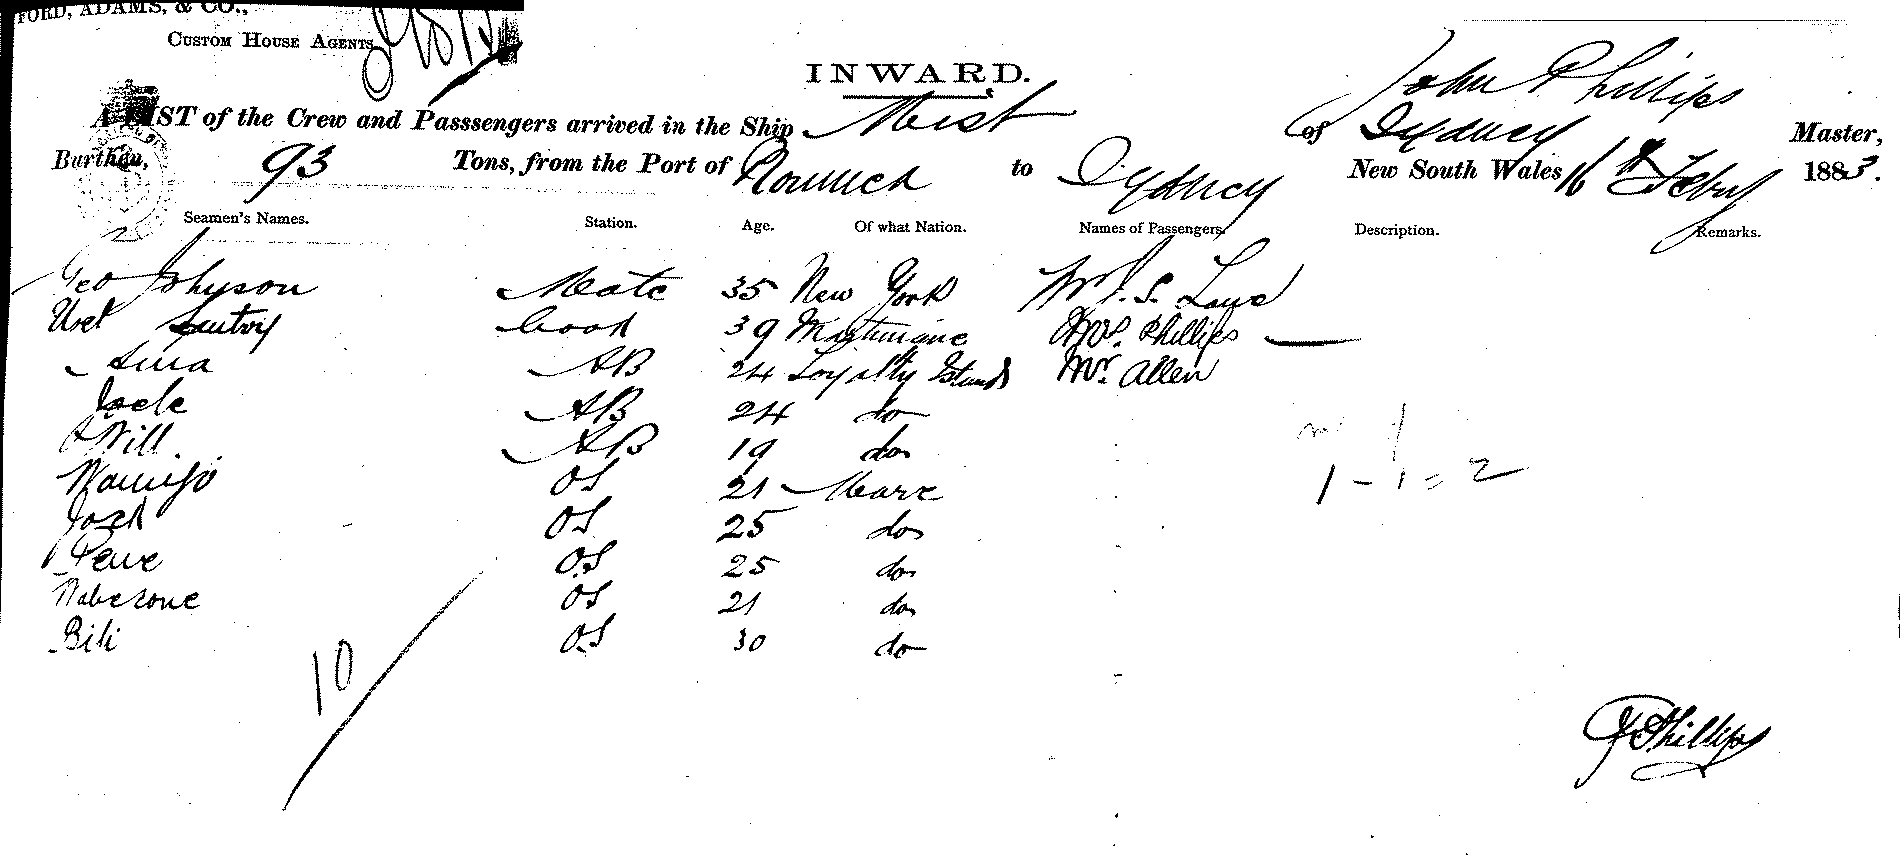 FORD, ADAMS, & CO.,
CUSTOM HOUSE AGENTS
INWARD.
John Phillips
A LIST of the Crew and Passsengers arrived in the Ship Mist of Sydney Master,
Burthen, 93 Tons, from the Port of Noumea to Sydney New South Wales 16th Febry 1883.
Seamen's Names. Station. Age. Of what Nation. Names of Passengers. Description. Remarks.
Geo Johnson Mate 35 New York S. Lane
Cook 39 Martinique Mrs. Phillips
AB 24 Loyalty Islands Mr. Allen
Jack AB 24 do
Will AB 19 do
OS 21 Mare
OS 25 do
OS 25 do
OS 21 do
Bili OS 30 do
1 - 1 = 2
10
J Phillips